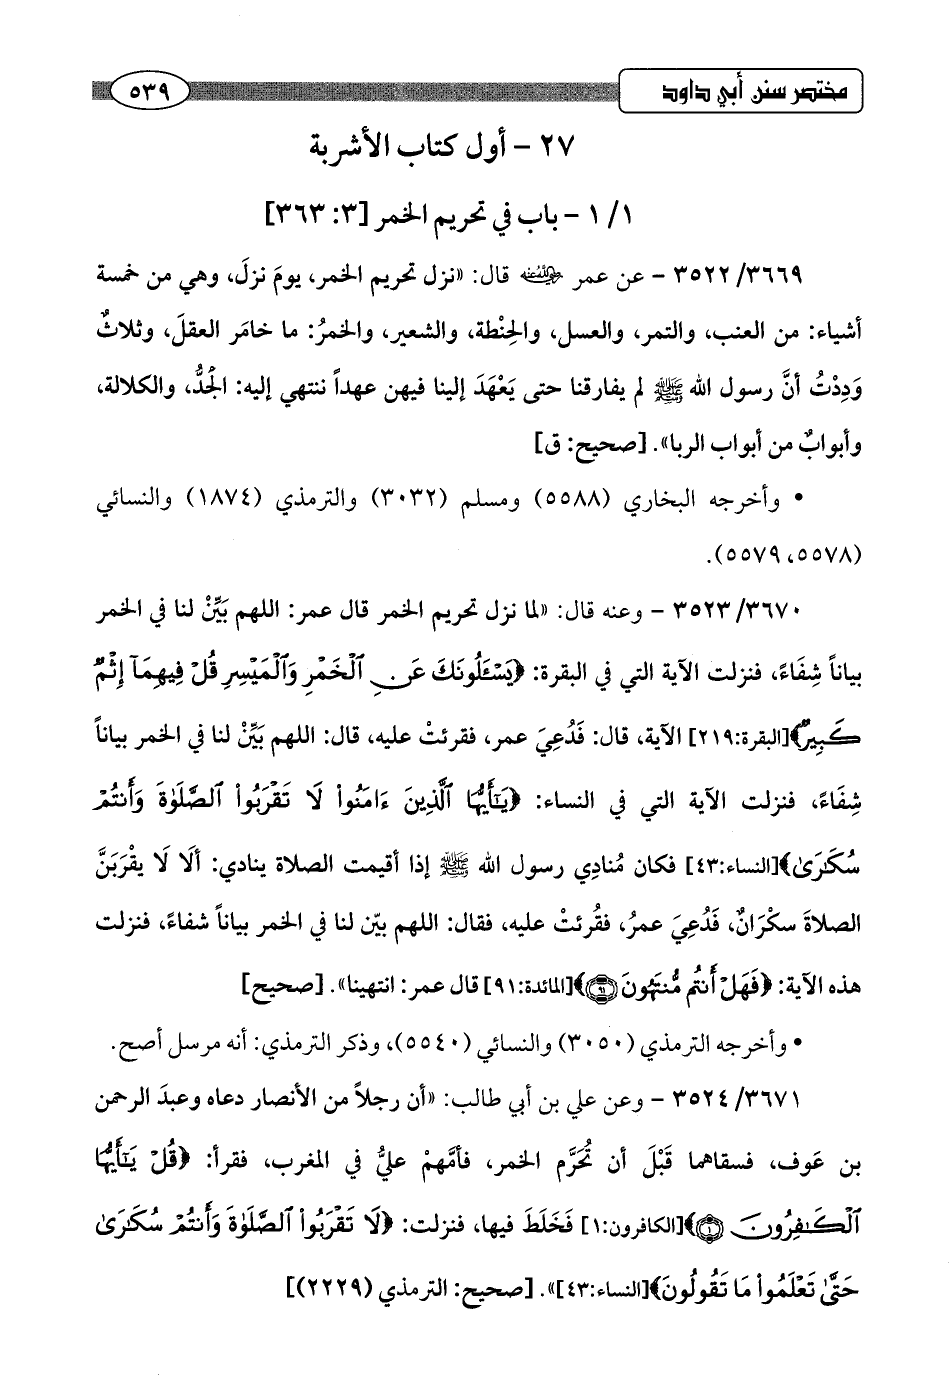 مختصر سنن أبي داود
٥٣٩
٢٧ - أول كتاب الأشربة
١/ ١ - باب في تحريم الخمر [٣: ٣٦٣]
٣٥٢٢/٣٦٦٩ - عن عمر رضي الله عنه قال: «نزل تحريم الخمر، يومَ نزلَ، وهي من خمسة
أشياء: من العنب، والتمر، والعسل، والحِنْطة، والشعير، والخمرُ: ما خامَر العقلَ، وثلاثٌ
وَدِدْتُ أنَّ رسول الله ﷺ لم يفارقنا حتى يَعْهَدَ إلينا فيهن عهداً ننتهي إليه: الجَدُّ، والكلالة،
وأبوابٌ من أبواب الربا». [صحيح: ق]
• وأخرجه البخاري (٥٥٨٨) ومسلم (٣٠٣٢) والترمذي (١٨٧٤) والنسائي
(٥٥٧٨، ٥٥٧٩).
٣٥٢٣/٣٦٧٠ - وعنه قال: «لما نزل تحريم الخمر قال عمر: اللهم بَيِّنْ لنا في الخمر
بياناً شِفَاءً، فنزلت الآية التي في البقرة: ﴿يَسْـَٔلُونَكَ عَنِ ٱلْخَمْرِ وَٱلْمَيْسِرِ قُلْ فِيهِمَآ إِثْمٌ
كَبِيرٌ﴾[البقرة:٢١٩] الآية، قال: فَدُعِيَ عمر، فقرئتْ عليه، قال: اللهم بَيِّنْ لنا في الخمر بياناً
شِفَاءً، فنزلت الآية التي في النساء: ﴿يَـٰٓأَيُّهَا ٱلَّذِينَ ءَامَنُوا۟ لَا تَقْرَبُوا۟ ٱلصَّلَوٰةَ وَأَنتُمْ
سُكَـٰرَىٰ﴾[النساء:٤٣] فكان مُنادِي رسول الله ﷺ إذا أقيمت الصلاة ينادي: ألَا لَا يقْرَبَنَّ
الصلاةَ سكْرَانٌ، فَدُعِيَ عمرُ، فقُرئتْ عليه، فقال: اللهم بيّن لنا في الخمر بياناً شفاءً، فنزلت
هذه الآية: ﴿فَهَلْ أَنتُم مُّنتَهُونَ ٩١﴾[المائدة:٩١] قال عمر: انتهينا». [صحيح]
• وأخرجه الترمذي (٣٠٥٠) والنسائي (٥٥٤٠)، وذكر الترمذي: أنه مرسل أصح.
٣٥٢٤/٣٦٧١ - وعن علي بن أبي طالب: «أن رجلاً من الأنصار دعاه وعبدَ الرحمن
بن عَوف، فسقاهما قَبْلَ أن تُحَرَّم الخمر، فأمَّهمْ عليُّ في المغرب، فقرأ: ﴿قُلْ يَـٰٓأَيُّهَا
ٱلْكَـٰفِرُونَ ١﴾[الكافرون:١] فَخَلَطَ فيها، فنزلت: ﴿لَا تَقْرَبُوا۟ ٱلصَّلَوٰةَ وَأَنتُمْ سُكَـٰرَىٰ
حَتَّىٰ تَعْلَمُوا۟ مَا تَقُولُونَ﴾[النساء:٤٣]». [صحيح: الترمذي (٢٢٢٩)]